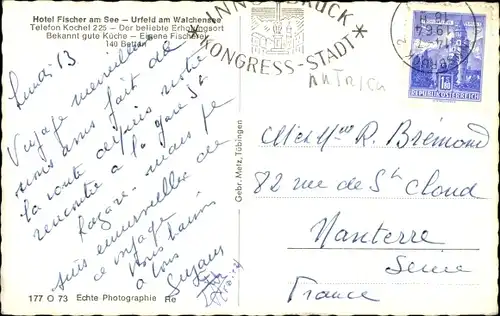 Hotel Fischer am See – Urfeld am Walchensee
Telefon Kochel 225 – Der beliebte Erholungsort
Bekannt gute Küche – Eigene Fischerei
140 Betten
Lundi 13
Voyage merveilleux
nous avons fait de
la route depuis notre
rencontre à la gare St
Lazare. mais je
suis émerveillée de
ce voyage
Vous
à tous
Suzanne
177 O 73 Echte Photographie Re
Gebr. Metz, Tübingen
INNSBRUCK
*KONGRESS-STADT*
AUTRICH
REPUBLIK ÖSTERREICH
R. Brémond
82 rue de St Cloud
Nanterre
Seine
France